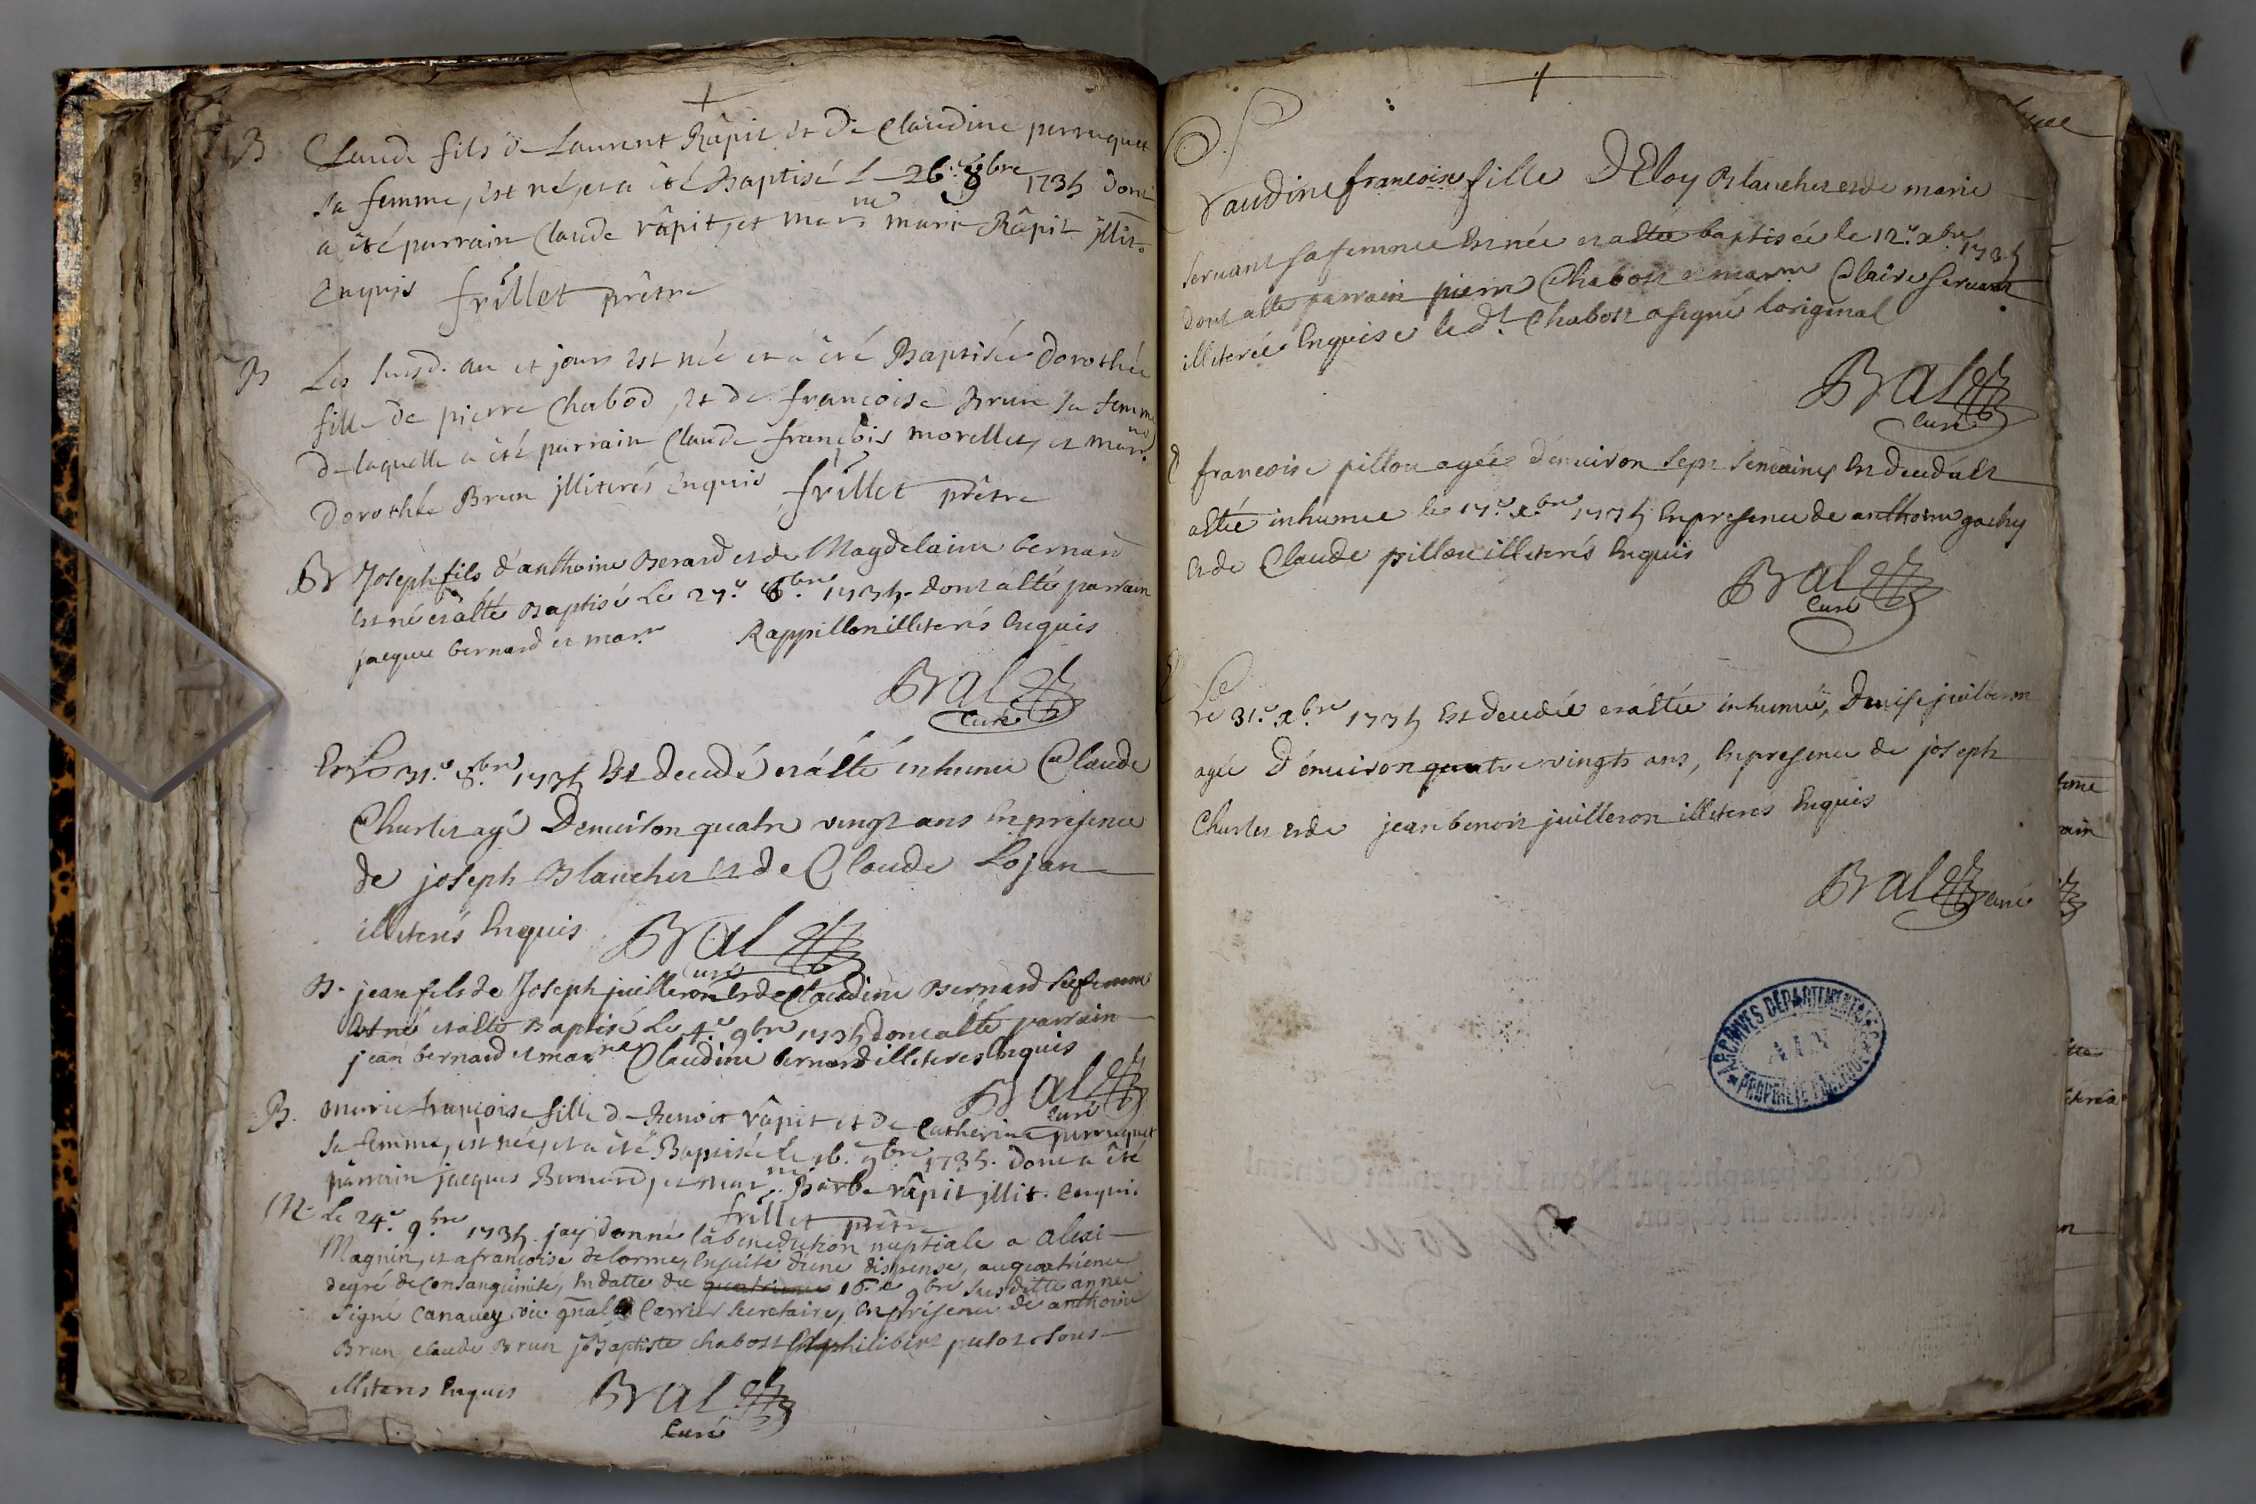 B Claude fils de Laurent Râpit et de Claudine perruquet
sa femme, est né, et a été Baptisé le 26.e 8bre 1735 dont
a été parrain Claude râpit, et marne marie Râpit illit.
Enquis frillet prêtre
B Les susd. an et jours est née et a été Baptisée dorothée
fille de pierre Chabod, et de françoise Brun sa femme
de laquelle a été parrain Claude françois morellet, et marne
Dorothée Brun illiterés Enquis frillet prêtre
B Joseph fils d'anthoine Berard et de Magdelaine bernard
Est né et a Esté Baptisé Le 27.e 8bre 1735. dont a Esté parrain
jacque bernard et marne Rappillon illiterés Enquis
Bral
Curé
Le 31.e 8bre 1735 Est decedé et a Esté inhumé Claude
Charlet agé D'environ quatre vingt ans En presence
de joseph Blanchet Et de Claude Lojan
illiterés Enquis Bral
Curé
B. jean fils de Joseph juilleron Et de Claudine Bernard sa femme
Est né et a Esté Baptisé Le 4.e 9bre 1735 dont a Esté parrain
jean bernard et marne Claudine bernard illiteres Enquis
Bral
Curé
B. marie françoise fille de Benoit râpit et de Catherine perruquet
sa femme, est née, et a été Baptisée le 16.e 9bre 1735. dont a été
parrain jacques Bernard, et marne Barbe râpit illit. Enquis.
frillet prêtre
M. Le 24.e 9bre 1735. jay donné la benediction nuptiale a alexi
Magnin, et a françoise delorme, Ensuite d'une dispense, au quatrieme
degré de Consanguinité, En datte du quatrieme 16.e 9bre susditte année
signé Canavey vic gnal Carrier secretaire, En presence de anthoine
Brun, claude Brun jBaptiste chabost Et philibert putot tous
illiteres Enquis Bral
Curé
Claudine françoise fille D'Eloy Blanchet et de marie
servant sa femme Est née et a Estée baptisée le 12.e xbre 1735
dont a Esté parrain pierre Chabost et marne Claire servant
illiterée Enquise le dt Chabost a signé l'original
Bral
Curé
francoise pillou agée d'environ sept semaines Est decedée Et
a Estée inhumée le 17.e xbre 1735 En presence de anthoine gachy
Et de Claude pillou illiterés Enquis
Bral
Curé
Le 31.e xbre 1735 Est decedée et a Estée inhumée, Denise juilleron
agée D'environ quatre vingts ans, En presence de joseph
Charlet et de jean benoit juilleron illiterés Enquis
Bral curé
ARCHIVES DÉPARTEMENTALES
AIN
PROPRIÉTÉ PUBLIQUE